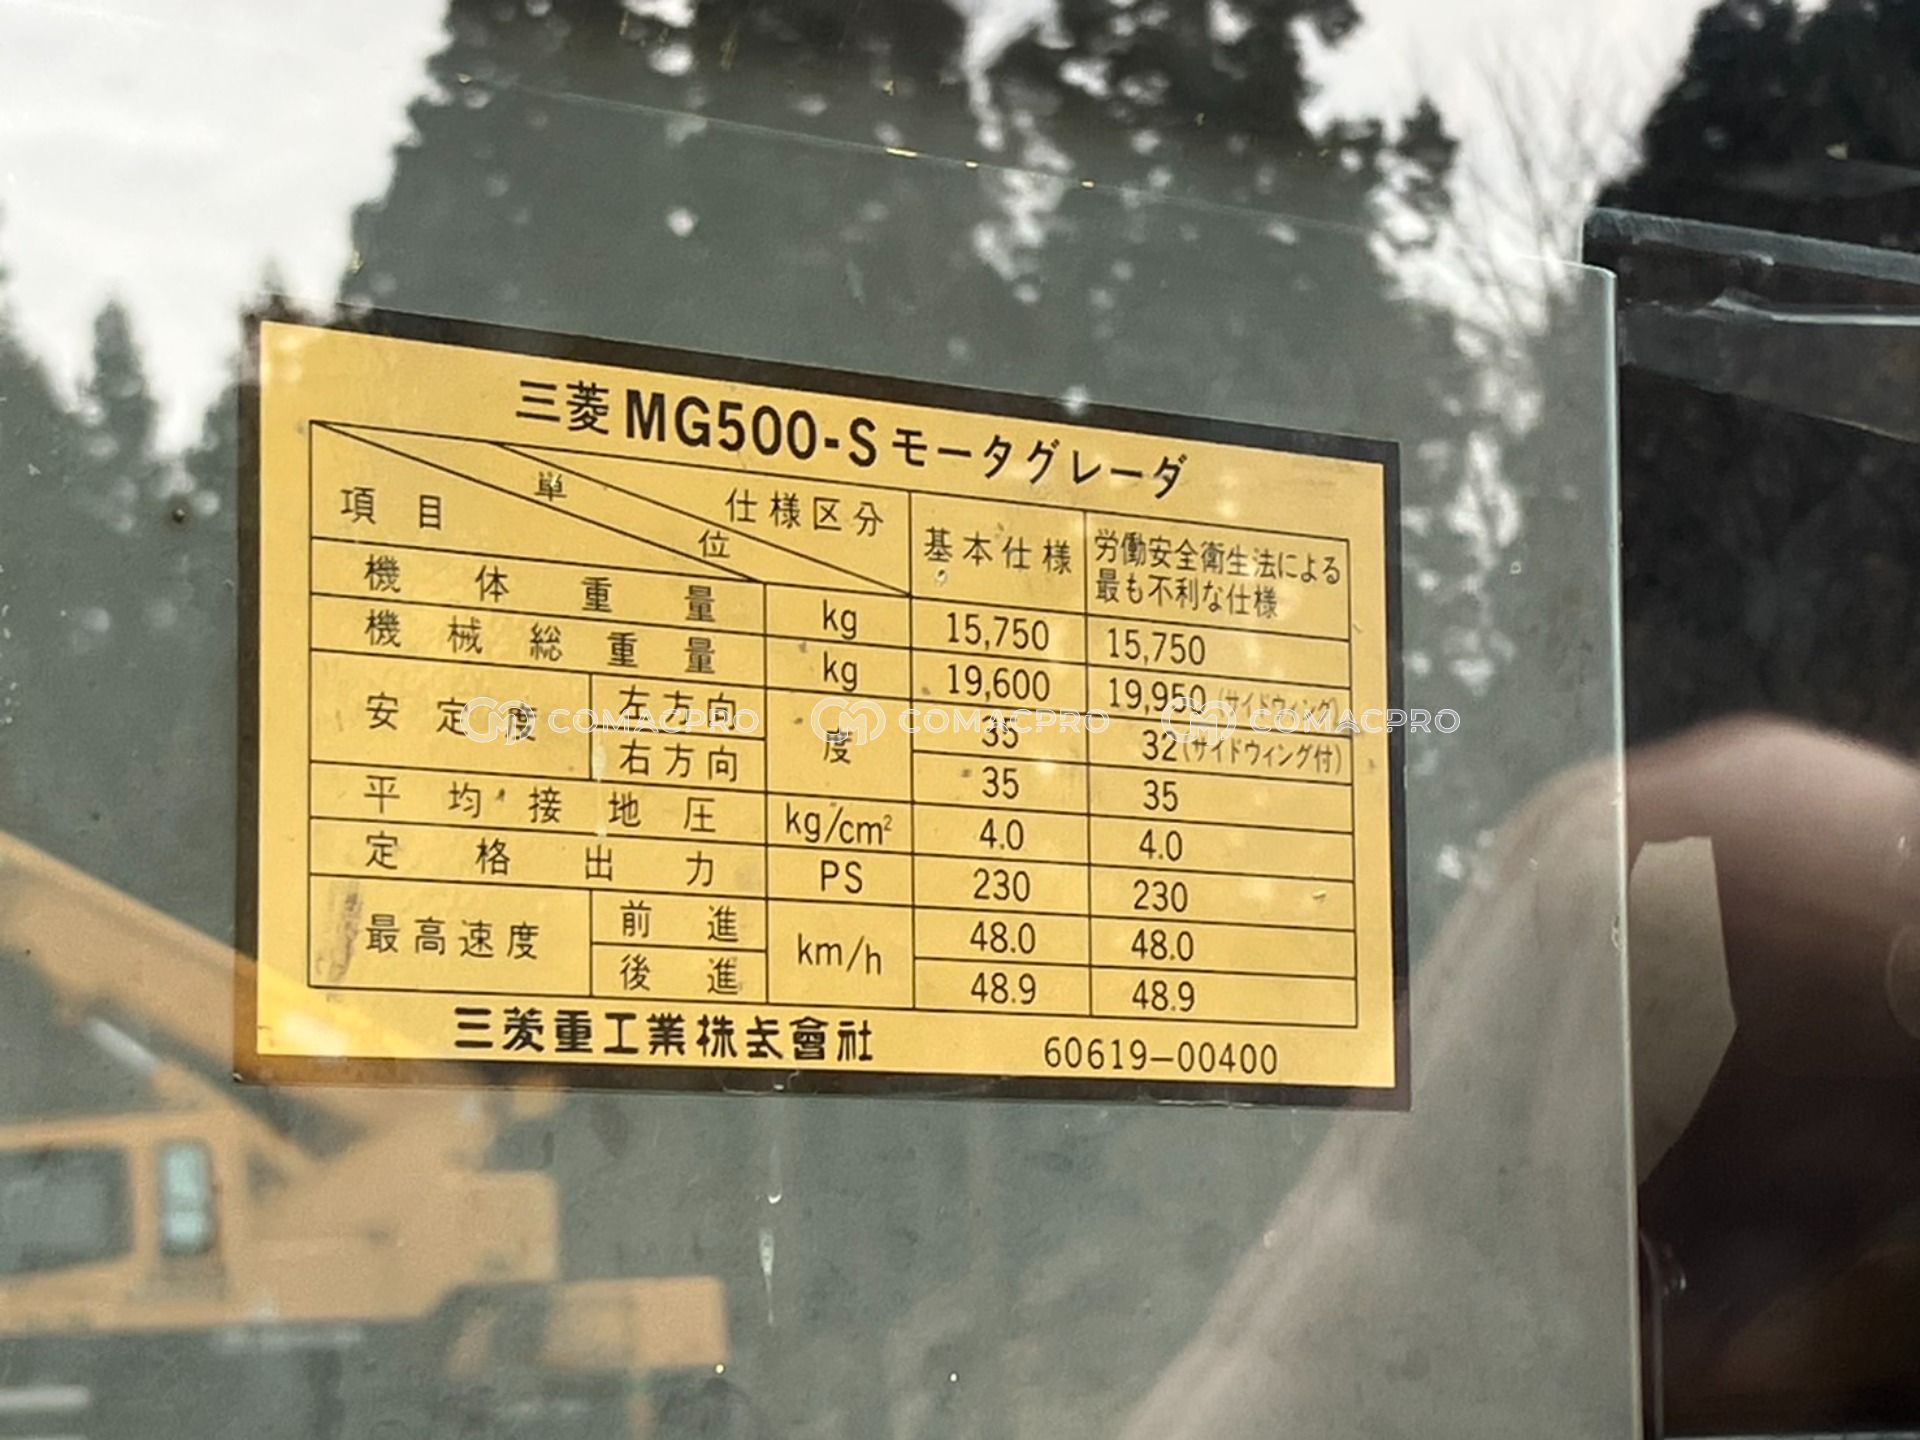 三菱 MG500-S モータグレーダ
項目 単位 仕様区分 基本仕様 労働安全衛生法による最も不利な仕様
機体重量 kg 15,750 15,750
機械総重量 kg 19,600 19,950 (サイドウィング)
安定度 左方向 度 35 32(サイドウィング付)
右方向 35 35
平均接地圧 kg/cm² 4.0 4.0
定格出力 PS 230 230
最高速度 前進 km/h 48.0 48.0
後進 48.9 48.9
三菱重工業株式會社 60619-00400
COMACPRO COMACPRO COMACPRO